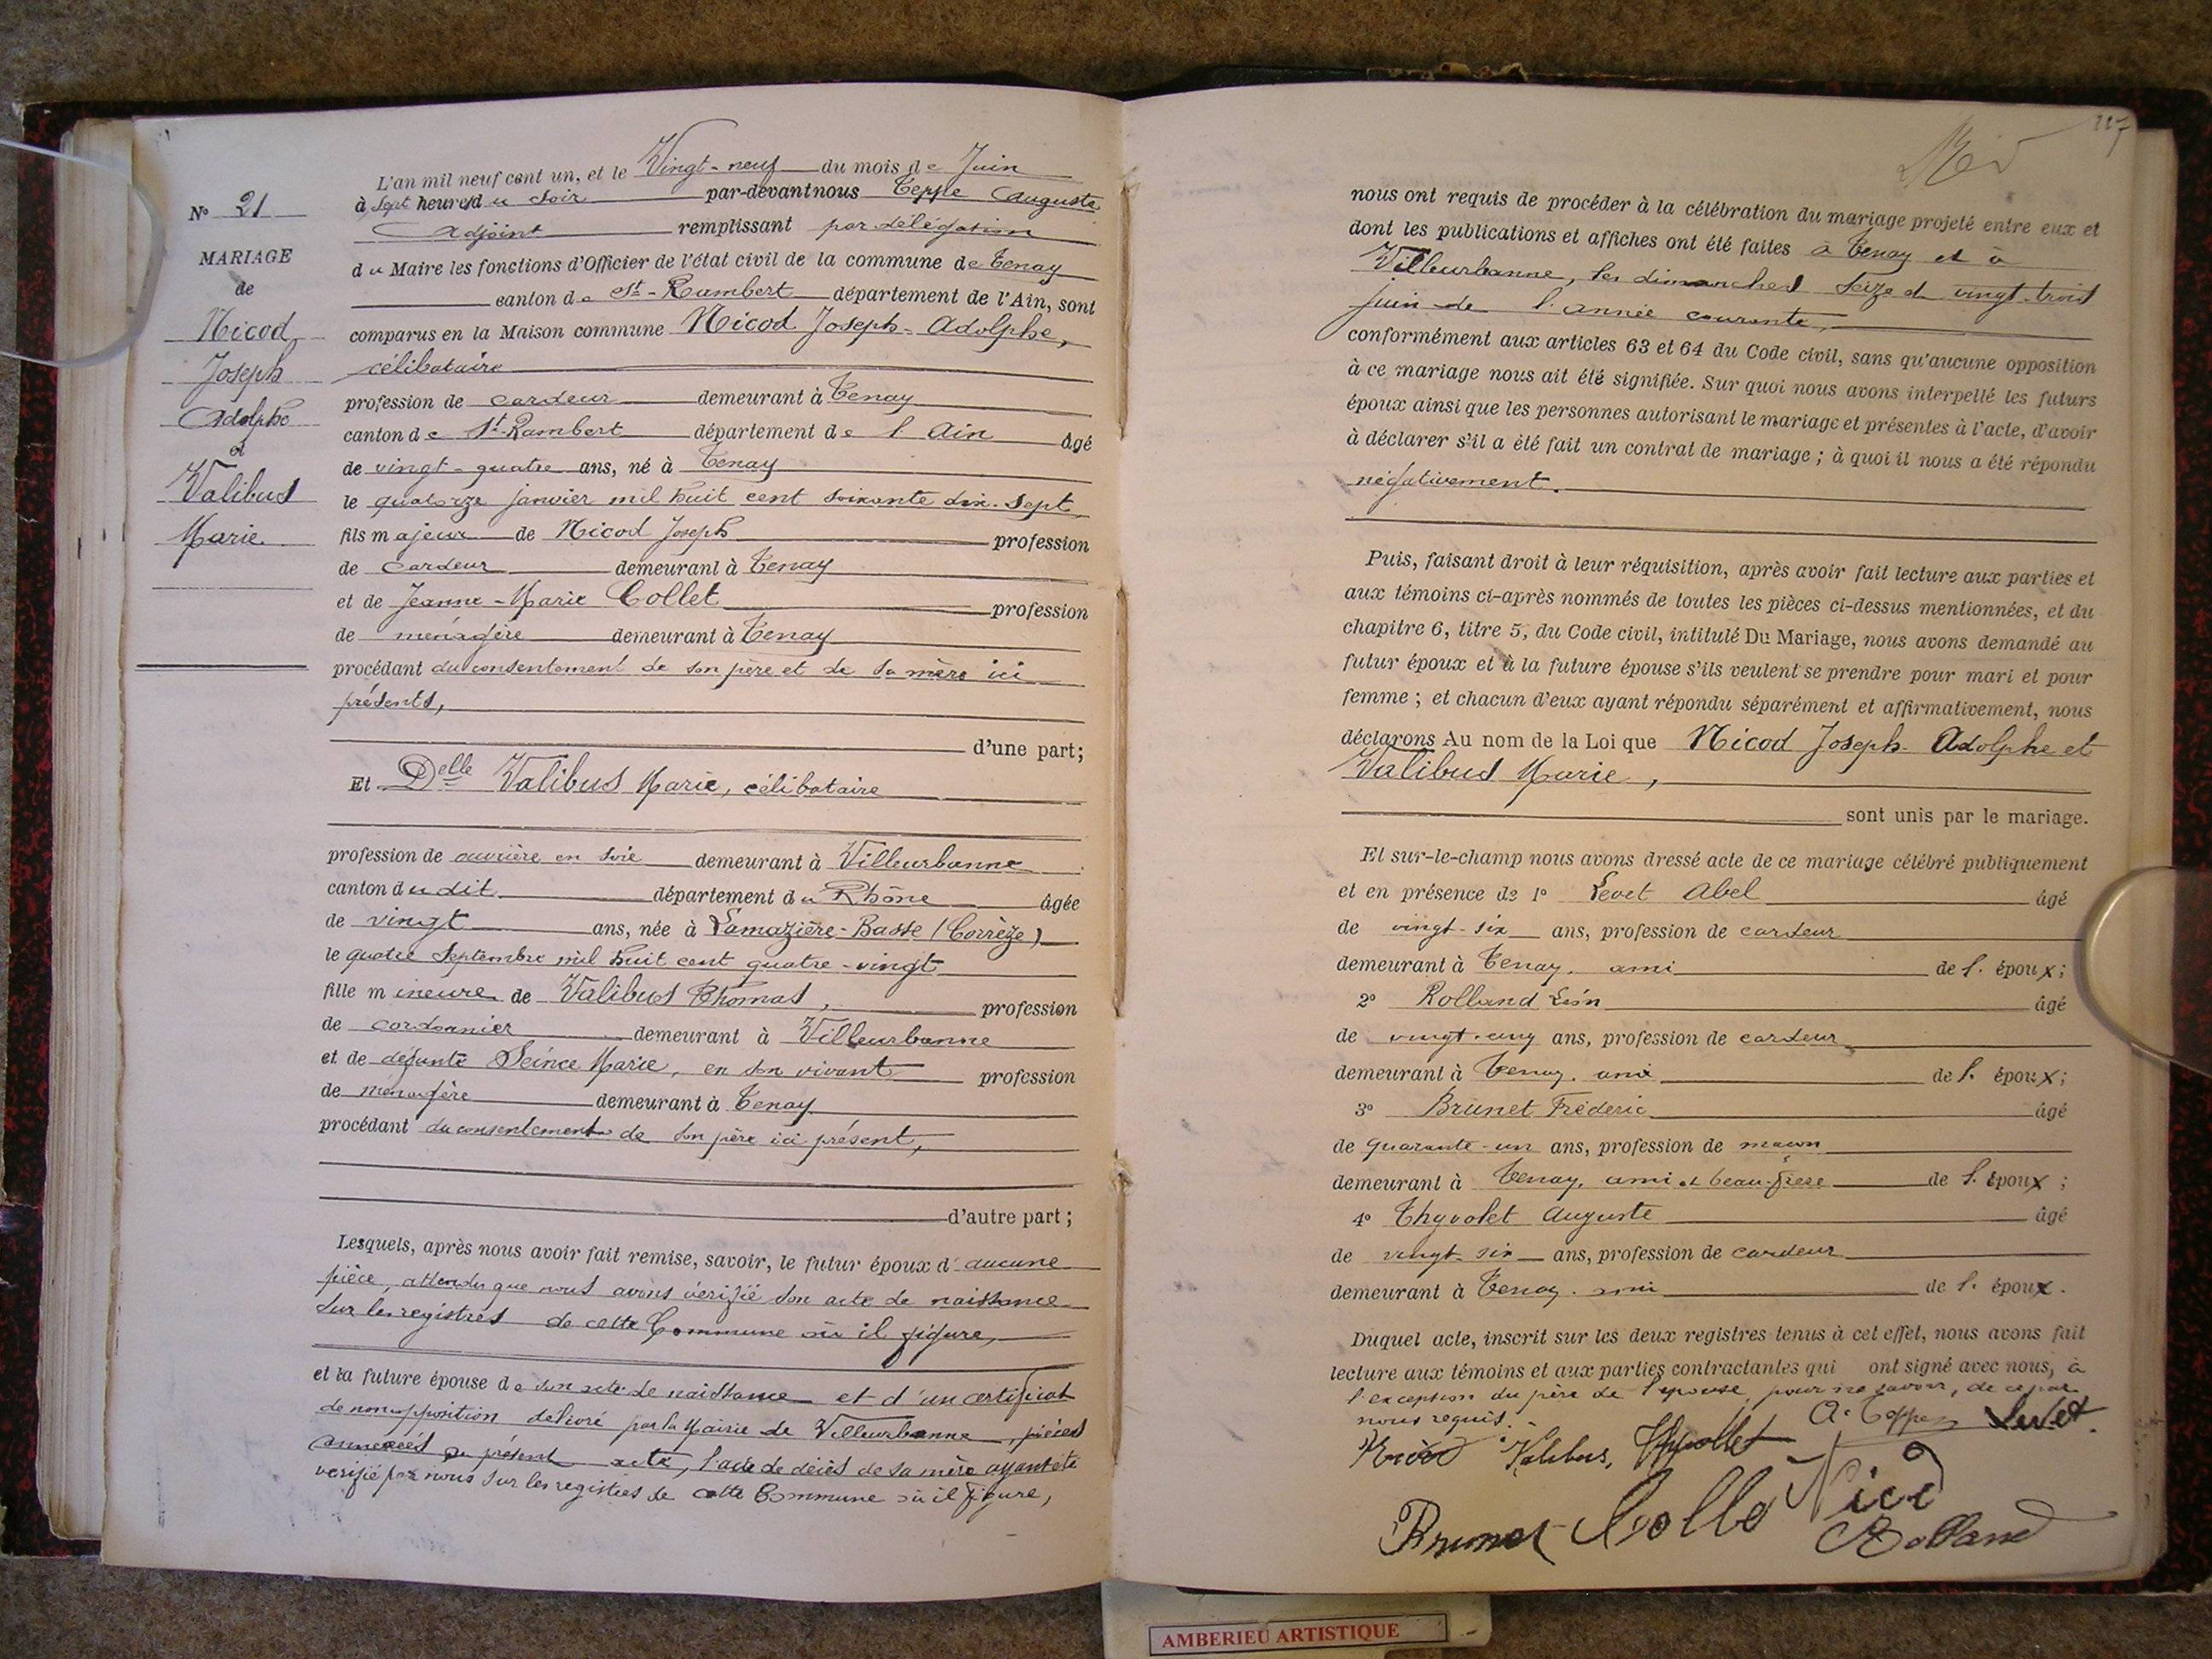 N° 21
MARIAGE
de
Nicod
Joseph
Adolphe
et
Valibus
Marie
L'an mil neuf cent un, et le Vingt-neuf du mois de Juin
à Sept heures du Soir par-devant nous Teppe Auguste
Adjoint remplissant par délégation
du Maire les fonctions d'Officier de l'état civil de la commune de Tenay
canton de St-Rambert département de l'Ain, sont
comparus en la Maison commune Nicod Joseph-Adolphe,
célibataire
profession de cardeur demeurant à Tenay
canton de St-Rambert département de l'Ain âgé
de vingt-quatre ans, né à Tenay
le quatorze janvier mil huit cent soixante dix-sept
fils majeur de Nicod Joseph profession
de cardeur demeurant à Tenay
et de Jeanne-Marie Collet profession
de ménagère demeurant à Tenay
procédant du consentement de son père et de sa mère ici
présents,
d'une part;
Et Delle Valibus Marie, célibataire
profession de ouvrière en soie demeurant à Villeurbanne
canton du dit département du Rhône âgée
de vingt ans, née à Lamazière-Basse (Corrèze)
le quatre Septembre mil huit cent quatre-vingt
fille mineure de Valibus Thomas, profession
de cordonnier demeurant à Villeurbanne
et de défunte Seince Marie, en son vivant profession
de ménagère demeurant à Tenay
procédant du consentement de son père ici présent,
d'autre part;
Lesquels, après nous avoir fait remise, savoir, le futur époux d'aucune
pièce, attendu que nous avons vérifié son acte de naissance
sur les registres de cette Commune où il figure,
et la future épouse de son acte de naissance et d'un certificat
de non opposition délivré par la Mairie de Villeurbanne, pièces
annexées au présent acte, l'acte de décès de sa mère ayant été
vérifié par nous sur les registres de cette Commune où il figure,
217
nous ont requis de procéder à la célébration du mariage projeté entre eux et
dont les publications et affiches ont été faites à Tenay et à
Villeurbanne, les dimanches Seize et vingt-trois
juin de l'année courante,
conformément aux articles 63 et 64 du Code civil, sans qu'aucune opposition
à ce mariage nous ait été signifiée. Sur quoi nous avons interpellé les futurs
époux ainsi que les personnes autorisant le mariage et présentes à l'acte, d'avoir
à déclarer s'il a été fait un contrat de mariage; à quoi il nous a été répondu
négativement.
Puis, faisant droit à leur réquisition, après avoir fait lecture aux parties et
aux témoins ci-après nommés de toutes les pièces ci-dessus mentionnées, et du
chapitre 6, titre 5, du Code civil, intitulé Du Mariage, nous avons demandé au
futur époux et à la future épouse s'ils veulent se prendre pour mari et pour
femme; et chacun d'eux ayant répondu séparément et affirmativement, nous
déclarons Au nom de la Loi que Nicod Joseph-Adolphe et
Valibus Marie,
sont unis par le mariage.
Et sur-le-champ nous avons dressé acte de ce mariage célébré publiquement
et en présence de 1° Levet Abel âgé
de vingt-six ans, profession de cardeur
demeurant à Tenay, ami de l'époux;
2° Rolland Léon âgé
de vingt-cinq ans, profession de cardeur
demeurant à Tenay, ami de l'époux;
3° Brunet Frédéric âgé
de quarante-un ans, profession de maçon
demeurant à Tenay, ami et beau-frère de l'époux;
4° Thyvolet Auguste âgé
de vingt-six ans, profession de cardeur
demeurant à Tenay, ami de l'époux.
Duquel acte, inscrit sur les deux registres tenus à cet effet, nous avons fait
lecture aux témoins et aux parties contractantes qui ont signé avec nous, à
l'exception du père de l'épouse, pour ne savoir, de ce par
nous requis.
A. Teppe Levet
Nicod Valibus, Thyvollet
Brunet Collet Nicod
Rolland
AMBERIEU ARTISTIQUE